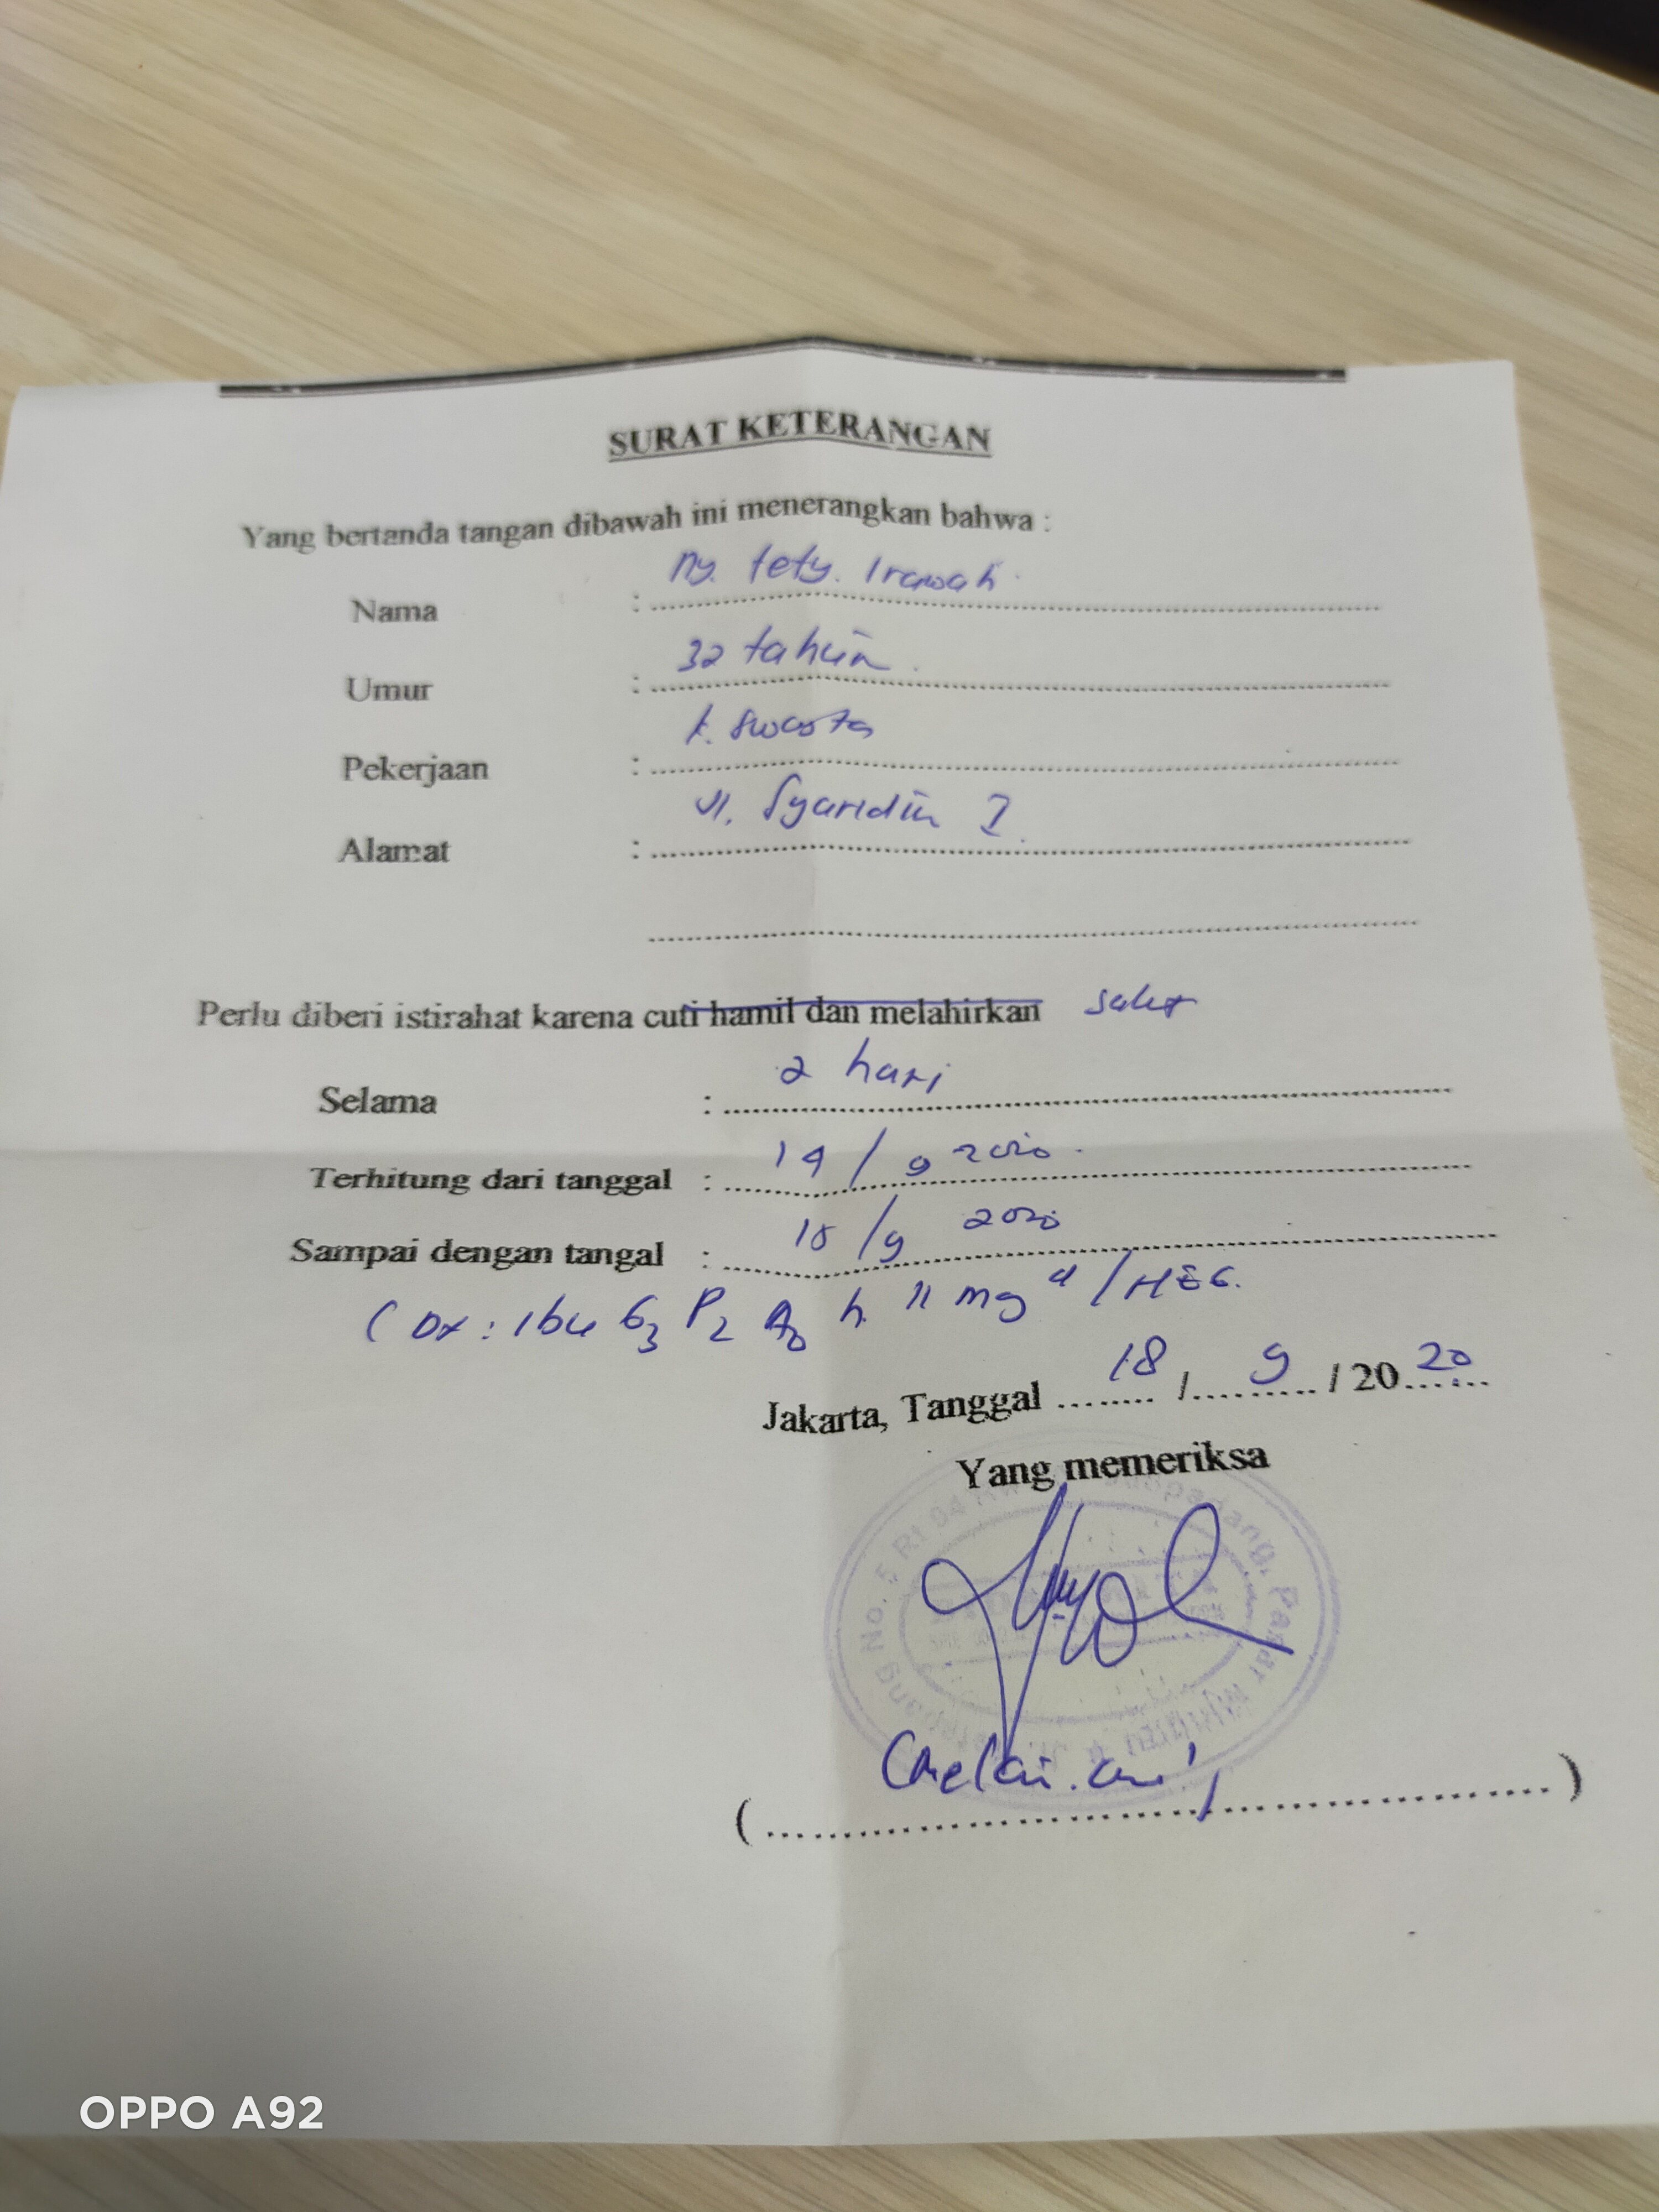 SURAT KETERANGAN
Yang bertanda tangan dibawah ini menerangkan bahwa :
Nama : Ny. tety. Irawah
Umur : 32 tahun
Pekerjaan : k. Swasta
Alamat : Jl. Syaridin I
Perlu diberi istirahat karena cuti hamil dan melahirkan sakit
Selama : 2 hari
Terhitung dari tanggal : 14 / 9 2020
Sampai dengan tangal : 15 / 9 2020
( Dx : Ibu G3 P2 A0 h. 11 mg / HEG.
Jakarta, Tanggal 18 / 9 / 20 20
Yang memeriksa
OPPO A92